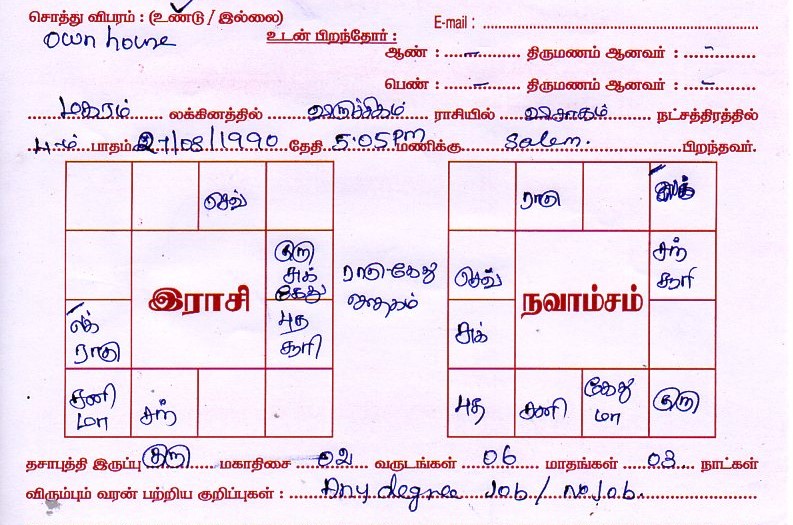 சொத்து விபரம் : (உண்டு / இல்லை)
E-mail :
own house
உடன் பிறந்தோர் :
ஆண் : – திருமணம் ஆனவர் : -
பெண் : – திருமணம் ஆனவர் : –
மகரம் லக்கினத்தில் விருச்சிகம் ராசியில் விசாகம் நட்சத்திரத்தில்
4-ம் பாதம் 27/08/1990 தேதி 5:05 pm மணிக்கு Salem. பிறந்தவர்.
செவ்
குரு
சுக்
கேது
இராசி
லக்
ராகு
புத
சூரி
சனி
மா
சந்
ராகு-கேது
ஜாதகம்
ராகு
செவ்
சந்
சூரி
நவாம்சம்
சுக்
புத
சனி
கேது
மா
குரு
தசாபுத்தி இருப்பு குரு மகாதிசை 02 வருடங்கள் 06 மாதங்கள் 03 நாட்கள்
விரும்பும் வரன் பற்றிய குறிப்புகள் : Any degree Job / No Job.